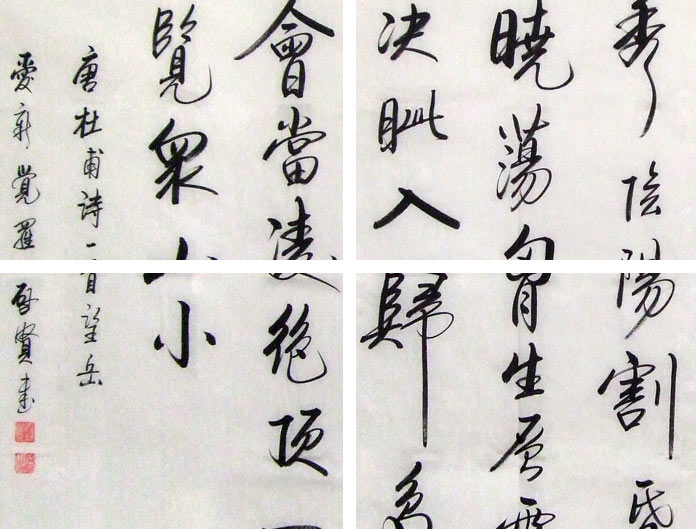 秀陰陽割昏
曉蕩胸生層雲
决眦入歸鳥
會當凌絕頂一
覽衆山小
唐杜甫詩一首望岳
愛新覺羅啓賢書